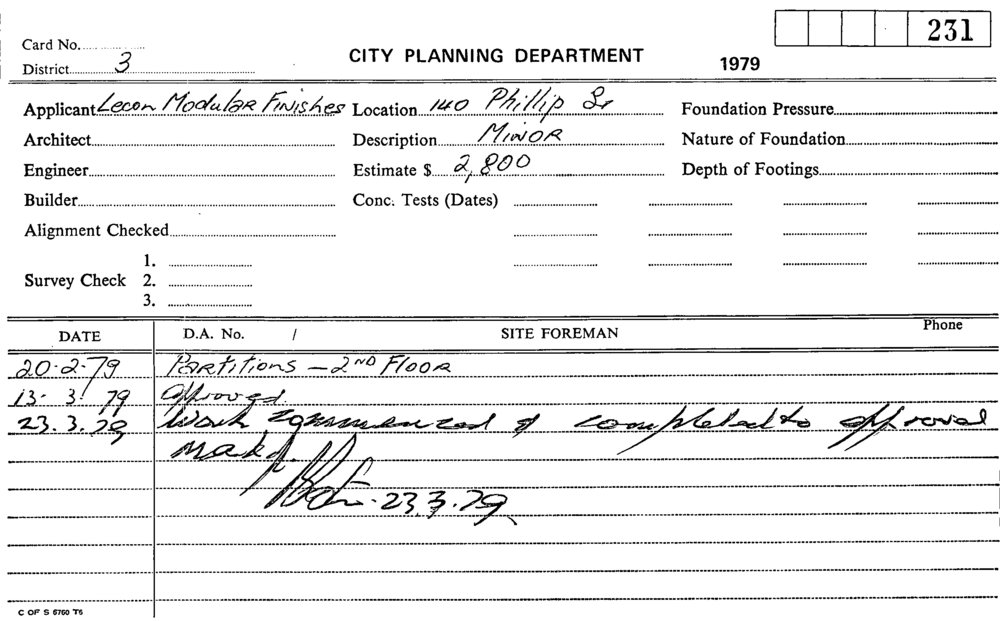 231
Card No.
District 3
CITY PLANNING DEPARTMENT
1979
Applicant Lecon Modular Finishes Location 140 Phillip St Foundation Pressure
Architect Description Minor Nature of Foundation
Engineer Estimate $ 2,800 Depth of Footings
Builder Conc. Tests (Dates)
Alignment Checked
1.
Survey Check 2.
3.
DATE D.A. No. / SITE FOREMAN Phone
20.2.79 Partitions - 2ND Floor
13. 3. 79 Approved.
23.3.79 Work commenced & completed to approval
23.3.79
C OF S 6760 T6